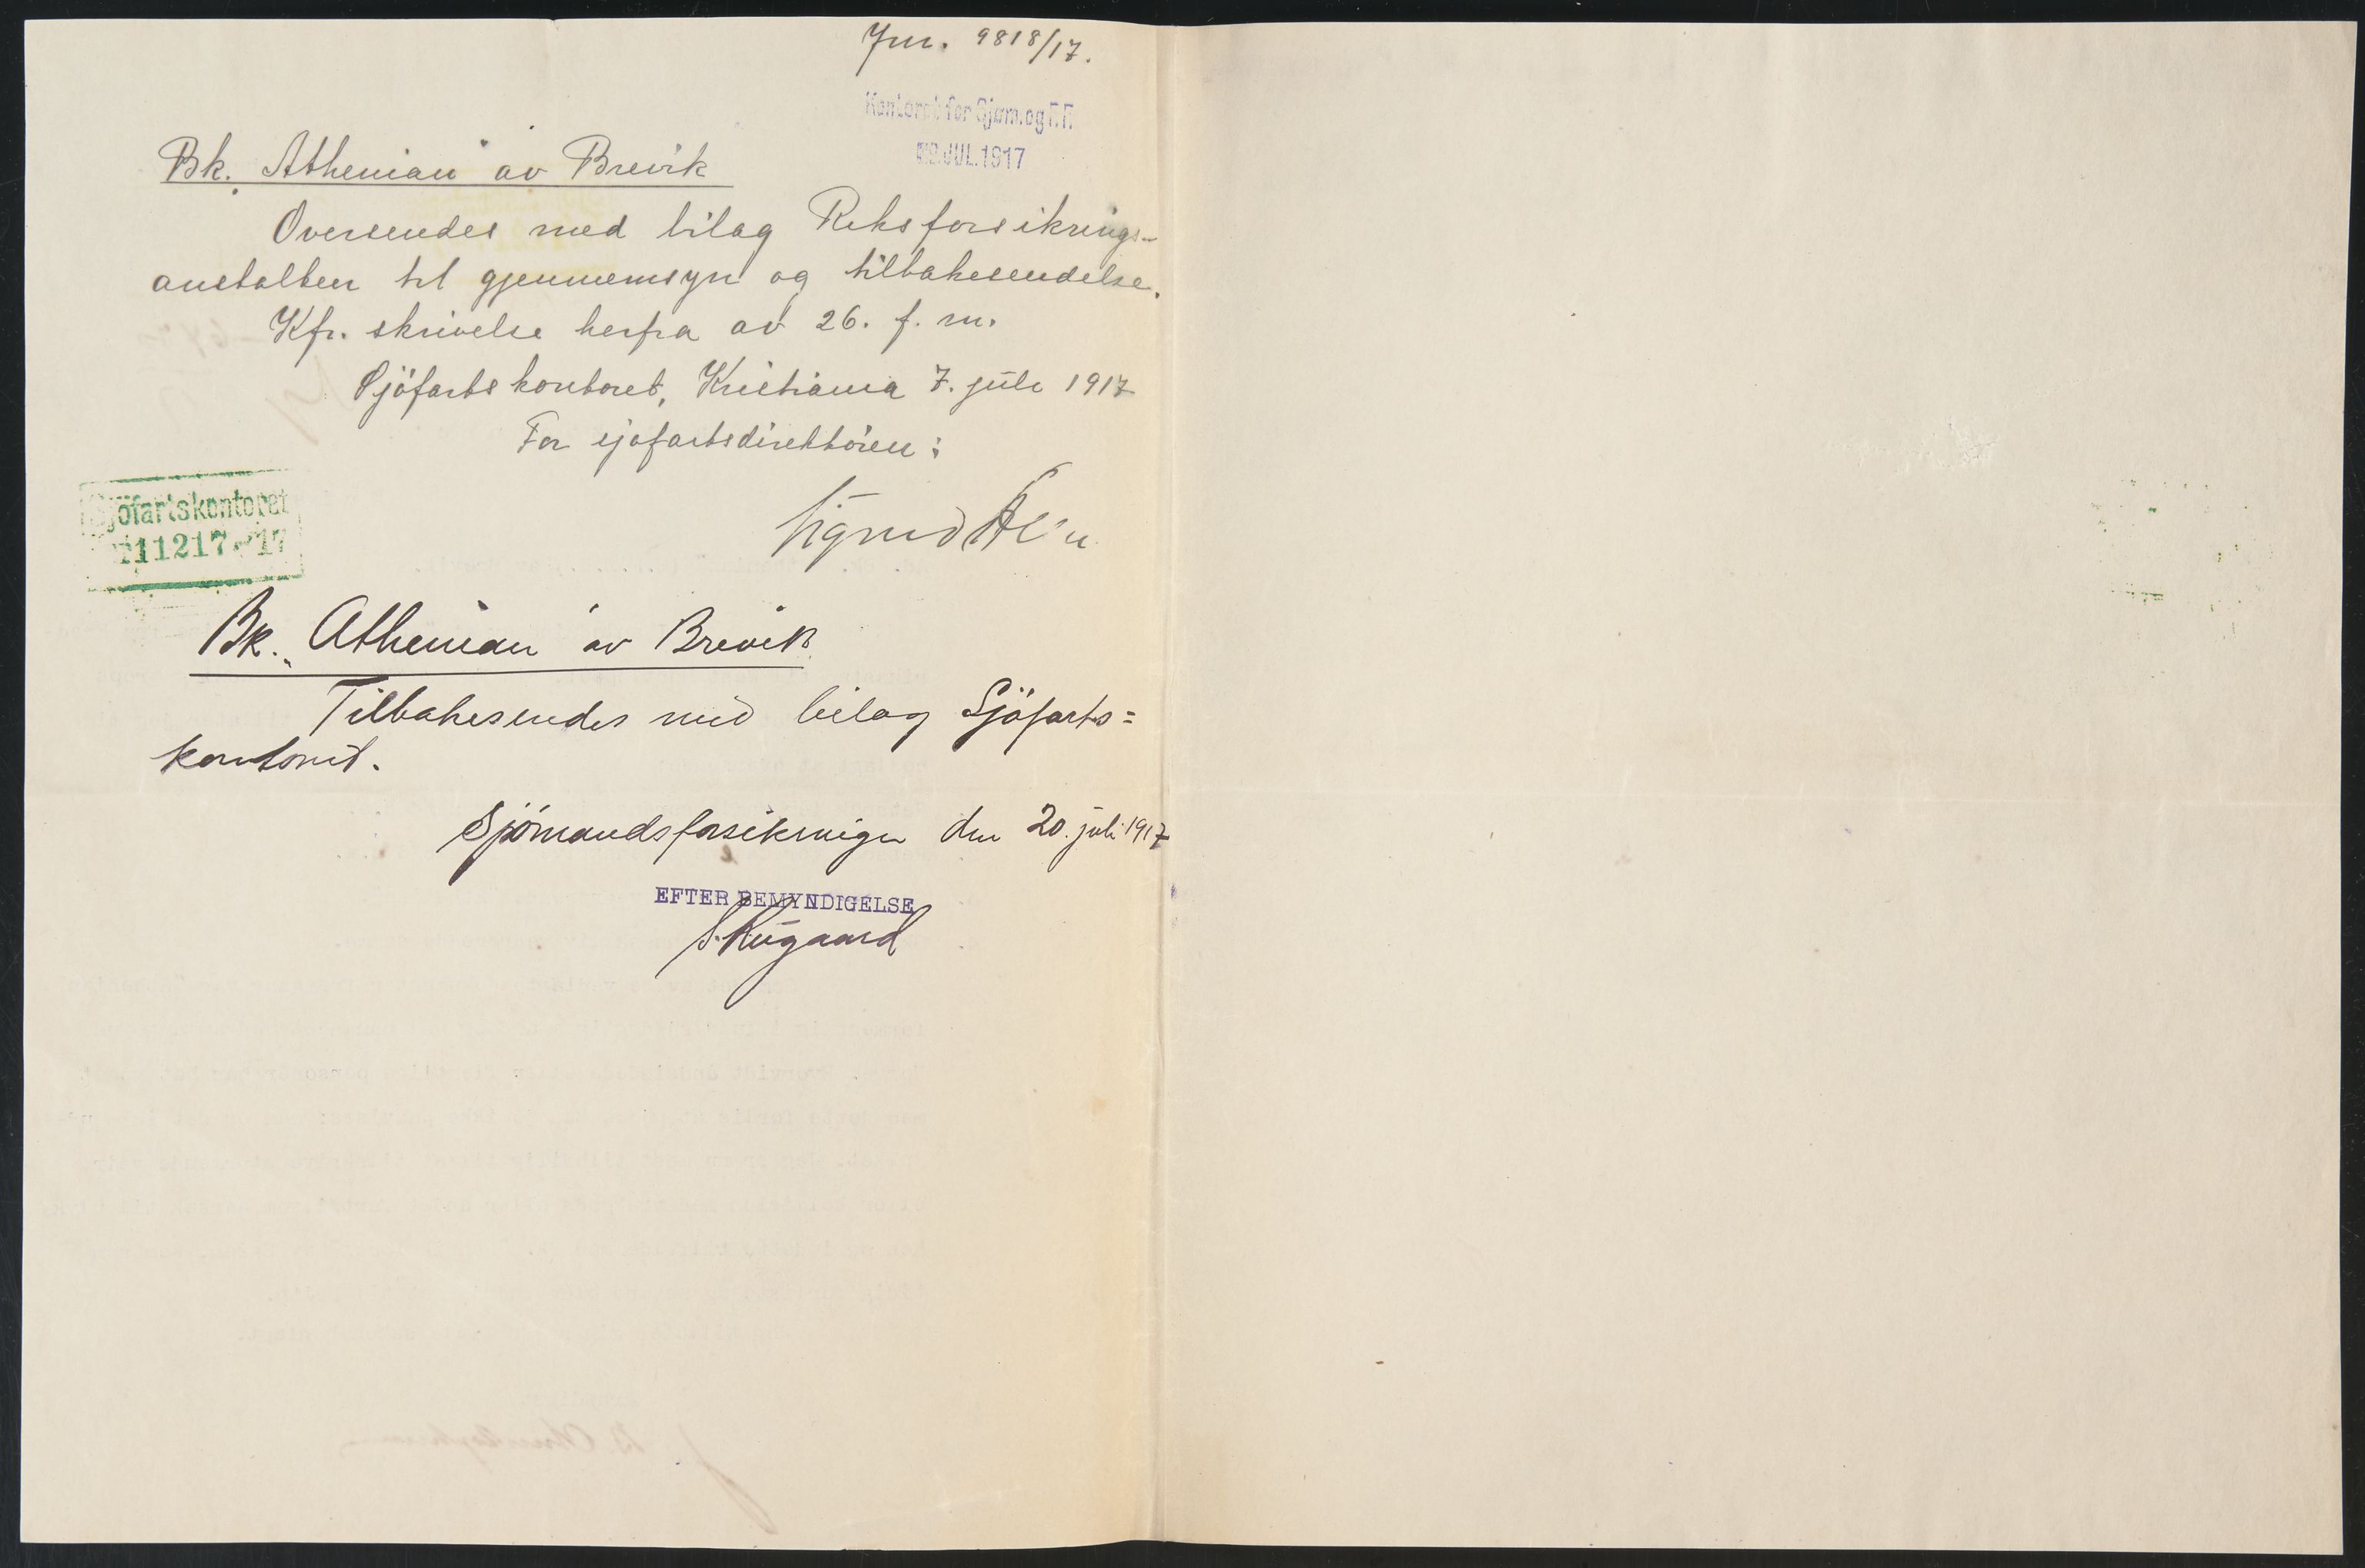 Jnr. 9818/17.
Kontoret for Sjøm. og F.F.
JUL. 1917
Bk. „Athenian" av Brevik
Oversendes med bilag Riksforsikrings-
anstalten til gjennemsyn og tilbakesendelse.
Kfr. skrivelse herfra av 26. f. m.
Sjöfartskontoret, Kristiania 7. juli 1917
For sjöfartsdirektören:
Sjöfartskontoret
11217 17
Bk. „Athenian" av Brevik
Tilbakesendes med bilag Sjöfarts=
kontoret.
Sjömandsforsikringen den 20. juli 1917
EFTER BEMYNDIGELSE